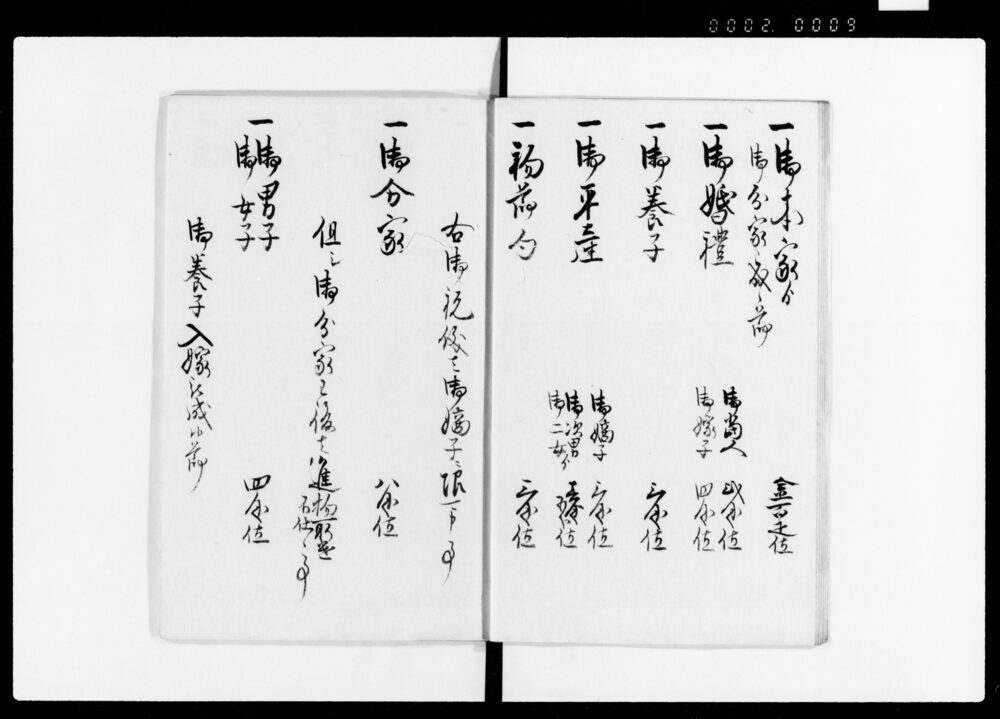 0002 0009
一御本家より
御分家成之節
金百疋位
一御婚禮
御当人
弐分位
御嫁子
四分位
一御養子
三分位
一御平産
御嫡子
三分位
御次男
御二女より
一初節句
三分位
右御祝儀者御嫡子ニ限可申事
一御分家
八分位
但シ御分家已後者進物取遣
不仕事
一御男子
御女子
四分位
御養子入嫁被成候節